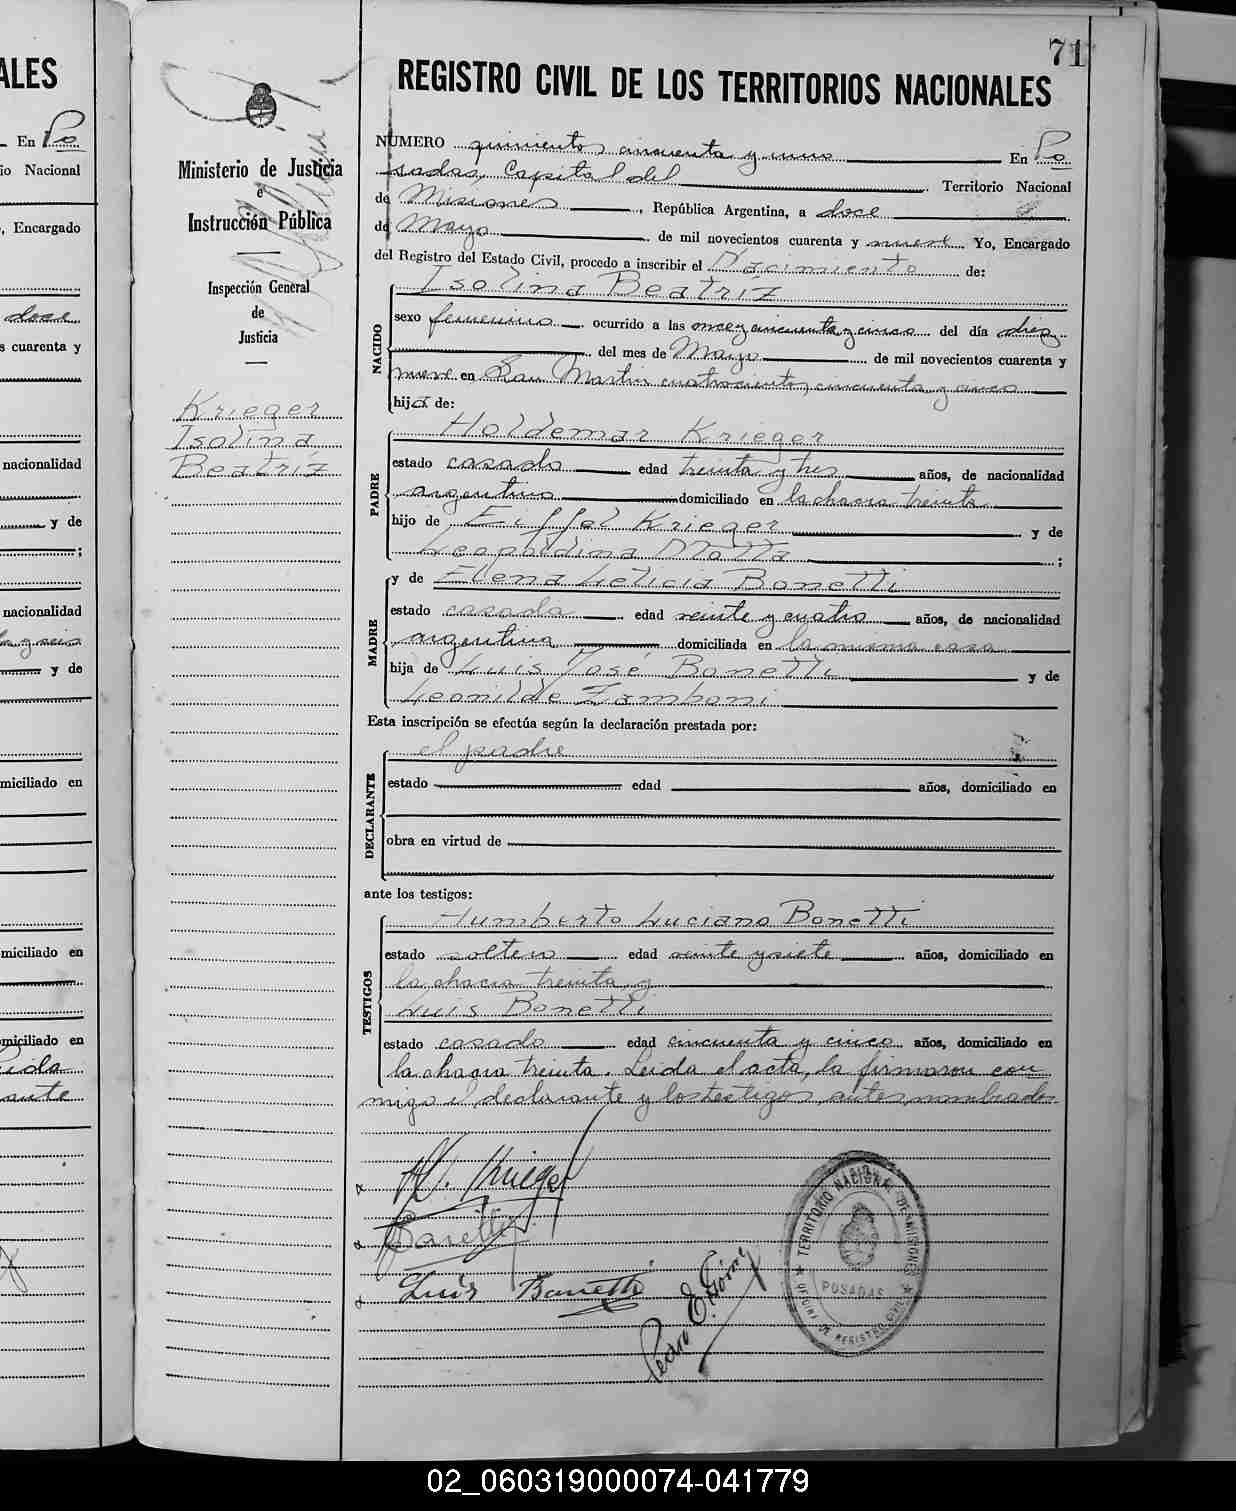 ALES
En Po
io Nacional
, Encargado
doce
s cuarenta y
nacionalidad
y de
;
nacionalidad
y de
miciliado en
miciliado en
omiciliado en
ante
71
Ministerio de Justicia
e
Instrucción Pública
Inspección General
de
Justicia
Krieger
Isolina
Beatriz
REGISTRO CIVIL DE LOS TERRITORIOS NACIONALES
NUMERO quinientos cincuenta y uno En Po
sadas, Capital del Territorio Nacional
de Misiones, República Argentina, a doce
de Mayo de mil novecientos cuarenta y nueve Yo, Encargado
del Registro del Estado Civil, procedo a inscribir el Nacimiento de:
NACIDO
Isolina Beatriz
sexo femenino ocurrido a las once y cincuenta y cinco del día diez
del mes de Mayo de mil novecientos cuarenta y
nueve en San Martin cuatrocientos cincuenta y cinco
hija de:
PADRE
Holdemar Krieger
estado casado edad treinta y tres años, de nacionalidad
argentino domiciliado en la chacra treinta
hijo de Eiffel Krieger y de
Leopoldina Motta ;
MADRE
y de Elena Leticia Bonetti
estado casada edad veinte y cuatro años, de nacionalidad
argentina domiciliada en la misma casa
hija de Luis José Bonetti y de
Leonilde Zamboni
Esta inscripción se efectúa según la declaración prestada por:
DECLARANTE
el padre
estado edad años, domiciliado en
obra en virtud de
ante los testigos:
TESTIGOS
Humberto Luciano Bonetti
estado soltero edad veinte y siete años, domiciliado en
la chacra treinta y
Luis Bonetti
estado casado edad cincuenta y cinco años, domiciliado en
la chacra treinta. Leida el acta, la firmaron con
migo el declarante y los testigos antes nombrados
H. Krieger
Bonetti
Luis Bonetti
Pedro E. Gómez
TERRITORIO NACIONAL DE MISIONES
POSADAS
OFICINA DE REGISTRO CIVIL
02_060319000074-041779